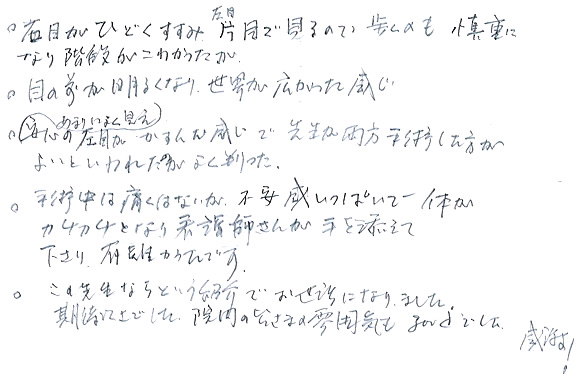 。右目がひどくすすみ 左目 片目で見るので 歩くのも 慎重に
なり階段がこわかったが
。目の前が明るくなり、世界が広がった感じ
。あまりによく見え 左目が かすんだ感じで 先生が両方手術した方が
よいといわれたのがよく判った。
。手術中は痛くはないが、不安感いっぱいで 体が
カチカチとなり 看護師さんが 手を添えて
下さり、有難かったです。
。この先生ならという紹介でお世話になりました。
期待以上でした。院内の皆さまの雰囲気も でした
感謝!